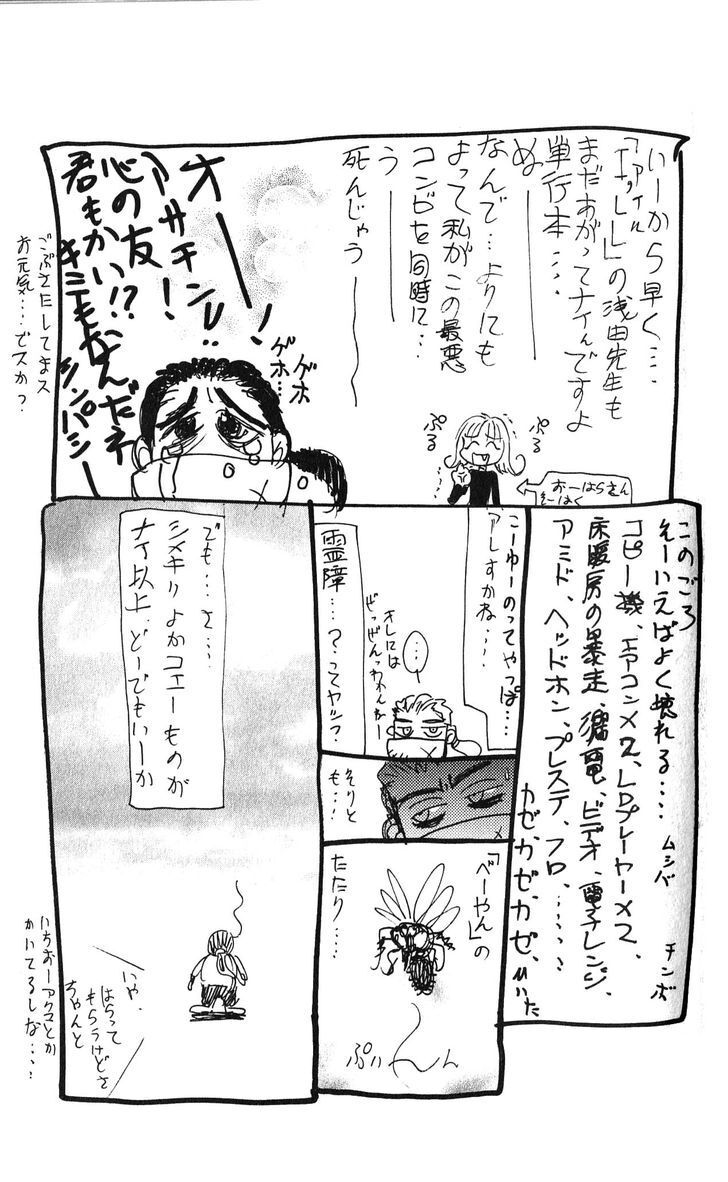 いーから早く…
「エンジェル」の浅田先生も
まだあがってナイんですよ
単行本…
ぬ――
なんで…よりにも
よって私がこの最悪
コンビを同時に…
う――
死んじゃう――
ぷる
ぷる
おーはらさん
そーはく
オ――!
アサチン!!
心の友!
君もかい!?
キミもなんだネ
シンパシー
ゲホ
ゲホ…
ごぶさたしてまス
お元気…でスか?
このごろ
そーいえばよく壊れる…
コピー機、エアコン×2、LDプレーヤー×2、
床暖房の暴走、漏電、ビデオ、電子レンジ、
アミド、ヘッドホン、プレステ、フロ、……
カゼ、カゼ、カゼ、ひいた
ムシバ
チンボ
こーゆーのってやっぱ…
アレすかね…
霊障…?ってヤツ?
…
オレには
ぜっぜんっわかんが
それと
も…!
「べーやん」の
たたり…
ぷぃ〜ん
でも…さ…
シメキリよかコエーものが
ナイ以上、どーでもいーか
いや、
はらって
もらうけどさ
ちゃんと
いちおーアクマとか
かいてるしな…!